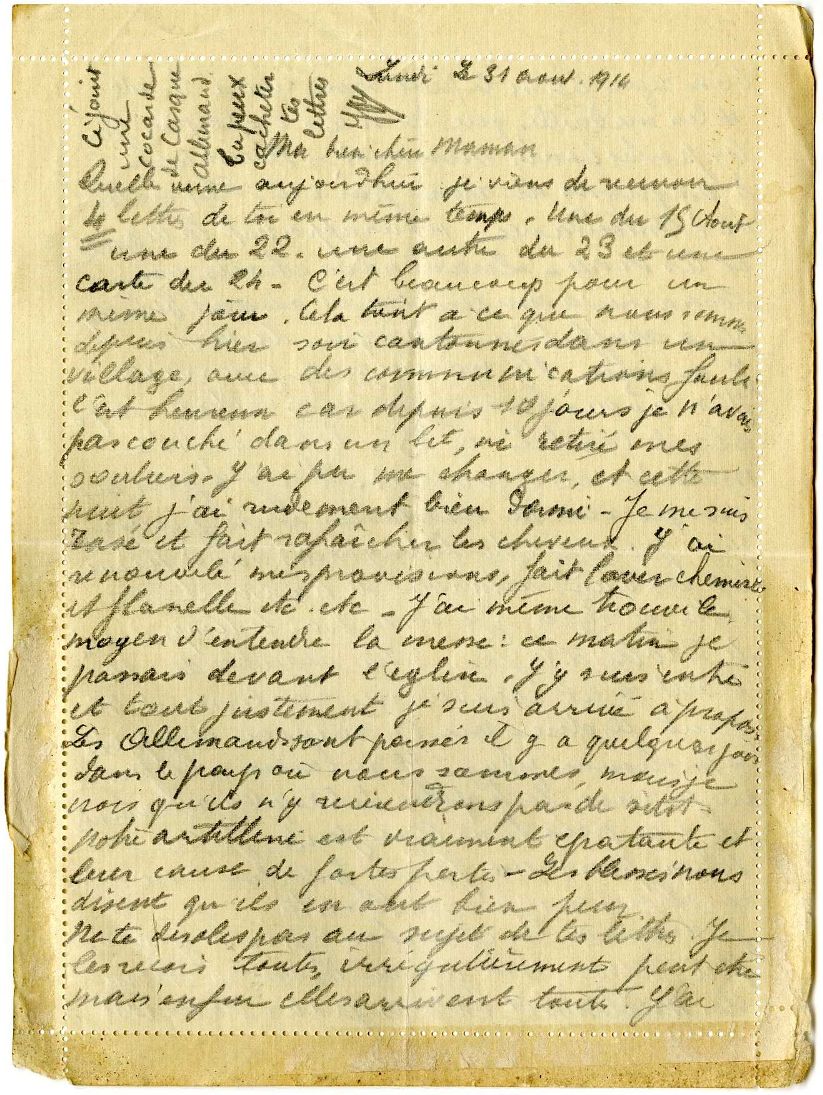 Ci joint
une
cocarde
de Casque
Allemand.
Tu peux
cacheter
tes
lettres
Lundi Le 31 aout. 191
Ma bien chère Maman
Quelle veine aujourdhui je viens de recevoir
4 lettres de toi en même temps. Une du 15 Aout
une du 22. une autre du 23 et une
carte du 24 - C'est beaucoup pour un
même jour. Cela tient a ce que nous sommes
depuis hier soir cantonnes dans un
village, avec des communications faciles
C'est heureux car depuis 10 jours je n'avais
pas couché dans un lit, ni retiré mes
souliers. J'ai pu me changer, et cette
nuit j'ai rudement bien dormi - Je me suis
rasé et fait rafraîcher les cheveux. J'ai
renouvelé mes provisions, fait laver chemise
et flanelle etc. etc - J'ai même trouvé le
moyen d'entendre la messe : ce matin je
passais devant l'eglise. J'y suis entré
et tout justement je suis arrivé a propos.
Les Allemands sont passés il y a quelques jours
dans le pays où nous sommes, mais je
crois qu'ils n'y reviendrons pas de sitot.
Notre artillerie est vraiment epatante et
leur cause de fortes pertes - Les blessés nous
disent qu'ils en ont bien peur
Ne te desoles pas au sujet de tes lettres Je
les recois toutes, irrégulièrement peut etre
mais enfin elles arrivent toute. J'ai